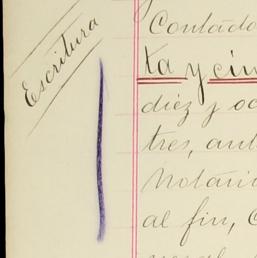 Escritura
Contado
ta y cin
diez y oc
tres, ant
Notari
al fin, C